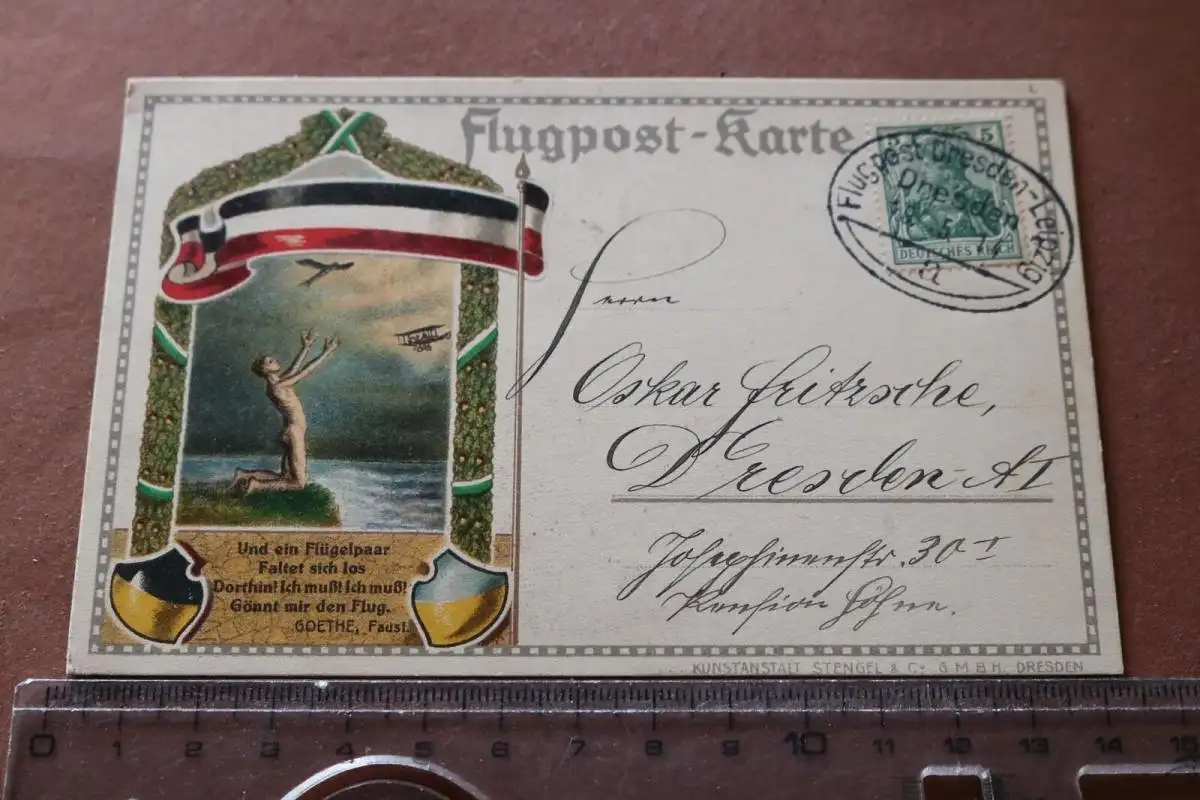 Flugpost-Karte
5
Flugpost Dresden-Leipzig
Dresden
8. 5.
DEUTSCHES REICH
Herrn
Oskar Fritzsche,
Dresden-A I
Josephinenstr. 30 I
Pension Höhne.
Und ein Flügelpaar
Faltet sich los
Dorthin! Ich muß! Ich muß!
Gönnt mir den Flug.
GOETHE, Faust.
KUNSTANSTALT STENGEL & Co G.M.B.H. DRESDEN
0 1 2 3 4 5 6 7 8 9 10 11 12 13 14 15